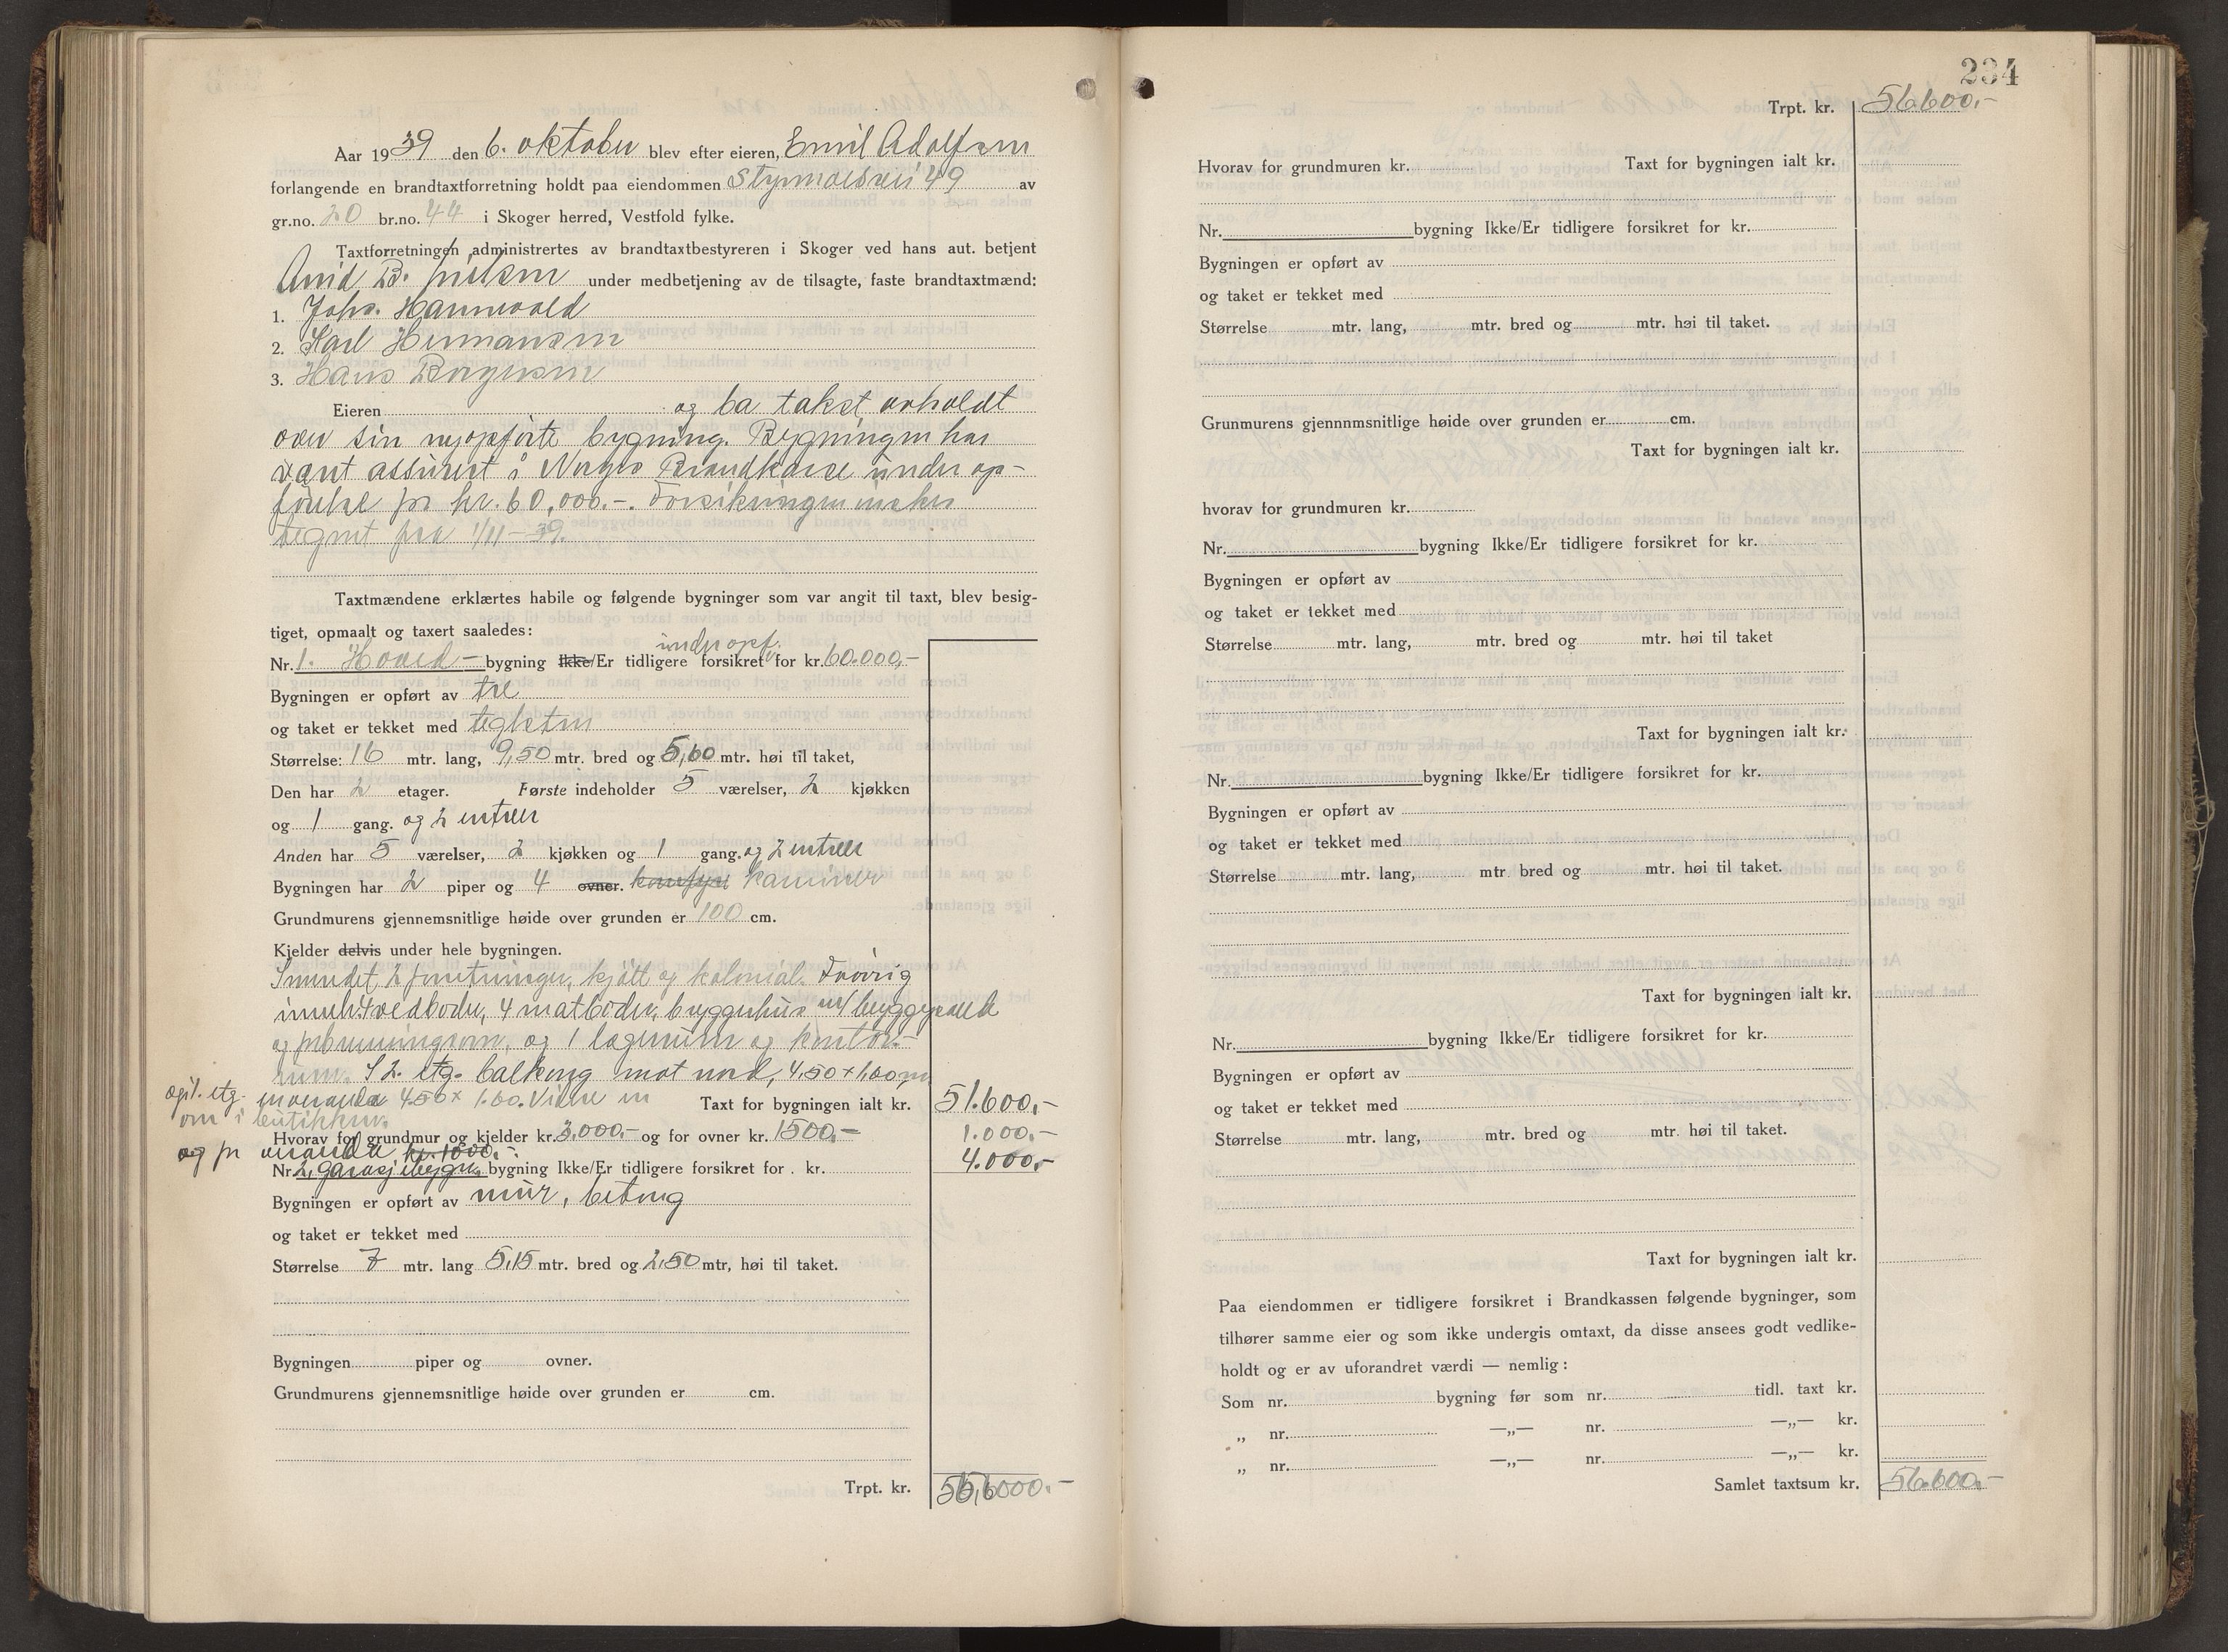 Aar 1939 den 6. oktober blev efter eieren, Emil Adolfsen
forlangende en brandtaxtforretning holdt paa eiendommen 49 av
gr.no. 20 br.no. 44 i Skoger herred, Vestfold fylke.
Taxtforretningen administrertes av brandtaxtbestyreren i Skoger ved hans aut. betjent
B. under medbetjening av de tilsagte, faste brandtaxtmænd:
1. Johs. Hannevold
2. Karl Hermansen
3. Hans
Eieren og ba takst avholdt
over sin nyopførte bygning. Bygningen har
vært assurert i Norges Brandkasse under op-
førelse for kr. 60,000.-. Forsikringen ønskes
tegnet fra 1/11-39.
Taxtmændene erklærtes habile og følgende bygninger som var angit til taxt, blev besig-
tiget, opmaalt og taxert saaledes:
under opf.
Nr. 1. Hoved- bygning Ikke/Er tidligere forsikret for kr. 60.000,-
Bygningen er opført av tre
og taket er tekket med teglsten
Størrelse: 16 mtr. lang, 9,50 mtr. bred og 5,60 mtr. høi til taket,
Den har 2 etager. Første indeholder 5 værelser, 2 kjøkken
og 1 gang. og 2 entreer
Anden har 5 værelser, 2 kjøkken og 1 gang. og 2 entreer
Bygningen har 2 piper og 4 ovner. komfyr kaminer
Grundmurens gjennemsnitlige høide over grunden er 100 cm.
Kjelder delvis under hele bygningen.
I murdet 2 forretninger, kjøtt og kolonial. Forøvrig
inneh. 4 vedboder, 4 matboder, bryggerhus m/ bryggepanne
og og 1 lagerrum og kontor-
rum. I 2. etg. balkong mot nord, 4,50 x 1,60 m
og i 1. etg. en veranda 4.50 x 1.60. Videre en Taxt for bygningen ialt kr. 51.600,-
i butikken.
Hvorav for grundmur og kjelder kr. 3.000,- og for ovner kr. 1500,- 1.000,-
og for veranda kr. 1000.- 4.000,-
Nr. 2, garasjebygn. bygning Ikke/Er tidligere forsikret for . kr.
Bygningen er opført av mur, betong
og taket er tekket med
Størrelse 7 mtr. lang 5,15 mtr. bred og 2,50 mtr, høi til taket.
Bygningen piper og ovner.
Grundmurens gjennemsnitlige høide over grunden er cm.
Trpt. kr.
234
Trpt. kr. 56.600.-
Hvorav for grundmuren kr. Taxt for bygningen ialt kr.
Nr. bygning Ikke/Er tidligere forsikret for kr.
Bygningen er opført av
og taket er tekket med
Størrelse mtr. lang, mtr. bred og mtr. høi til taket.
Grunmurens gjennnmsnitlige høide over grunden er cm.
Taxt for bygningen ialt kr.
hvorav for grundmuren kr.
Nr. bygning Ikke/Er tidligere forsikret for kr.
Bygningen er opført av
og taket er tekket med
Størrelse mtr. lang, mtr. bred og mtr. høi til taket
Taxt for bygningen ialt kr.
Nr. bygning Ikke/Er tidligere forsikret for kr.
Bygningen er opført av
og taket er tekket med
Størrelse mtr. lang, mtr bred og mtr. høi til taket.
Taxt for bygningen ialt kr.
Nr. bygning Ikke/Er tidligere forsikret for kr.
Bygningen er opført av
og taket er tekket med
Størrelse mtr. lang, mtr. bred og mtr. høi til taket.
Taxt for bygningen ialt kr.
Paa eiendommen er tidligere forsikret i Brandkassen følgende bygninger, som
tilhører samme eier og som ikke undergis omtaxt, da disse ansees godt vedlike-
holdt og er av uforandret værdi — nemlig:
Som nr. bygning før som nr. tidl. taxt kr.
„ nr. —„— nr. —„— kr.
„ nr. —„— nr. —„— kr.
Samlet taxtsum kr. 56.600,-